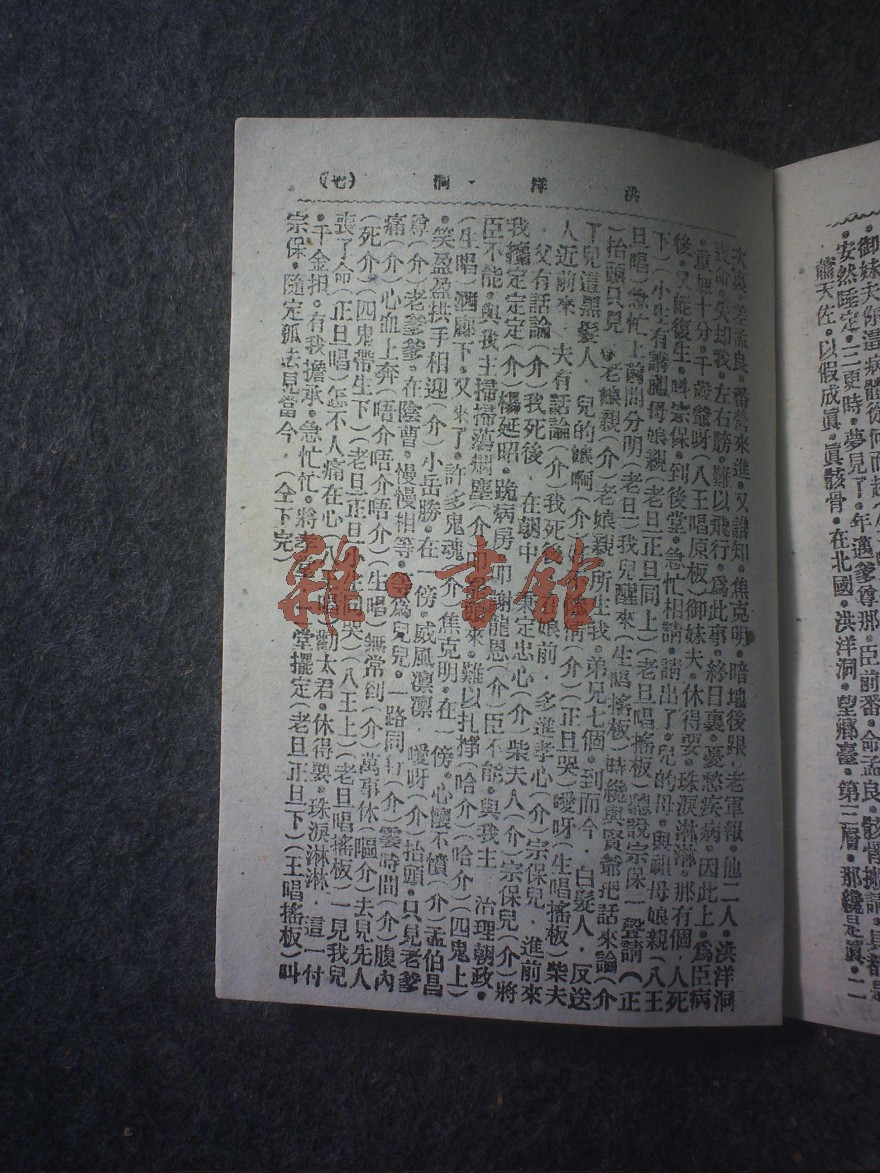 御妹夫你這病體從何而起
安然睡定。三更時。夢見了。年邁爹尊那。臣前番。命孟良。骸骨搬請。具都是
蕭天佐。以假成眞。眞骸骨。在北國。洪洋洞。望鄉臺。第三層。那纔是眞。二
洪洋洞 (七)
次裏。差孟良。番營來進。又誰知。焦克明。暗地後跟。老軍報。他二人。洪洋洞
喪命。失却我。左右膀。難以飛行。爲此事。終日裏。憂愁疾病。因此上。爲臣病
。重加十分。千歲爺呀(八王唱原板)御妹夫。休得要。珠淚淋淋。那有個。人死
後。又能復生。叫宗保。到後堂。急忙相請。請出了。兒的母。與祖母娘親(八王
下)(小生有請 母娘親(老旦正旦同上)(老旦唱搖板)聽說宗保一聲請(正
旦唱)急忙上前問分明(老旦)我兒醒來(生唱搖板)時纔與賢爺把話來論(介
)抬頭只見 老娘親(介)老娘親。所生我。弟兄七個。到而今。白髮人。反送
了兒這黑髮人。兒的娘啊(介) 情(介)正旦哭(噯呀(生唱搖板)柴夫
人近前來。夫有話論(介)我死後 娘前。多進孝心(介)宗保兒。進前來
。父有話論(介)我死後。在朝中 秉定忠心(介)柴夫人(介)宗保兒(介)將
我攙定定定(介)楊延昭。跪病房。叩謝龍恩(介)臣不能。與我主 治理朝政。
臣不能。與我主掃掃蕩烟塵(介 來。難以扎掙(哈介)(哈介)(四鬼上)
(生唱)迴廊下。又來了。許多鬼魂(介)焦克明。在一傍。心懷不憤(介)孟伯昌
。笑盈盈扯手相迎(介)小岳勝。在一傍。威風凜凜 噯呀(介)抬頭。只見老爹
尊(介)老爹爹。在陰曹。慢慢相等。等爲兒兒。一路同行(介)霎時間(介)腹內
痛(介)心血上奔(唔介唔介唔介)(生唱)無常到(介)萬事休(嘔介)去見先人
(死介)(四鬼帶生下)(老旦正旦小生同哭)(八王上)(老旦唱搖板)一見我兒
喪了命(正旦唱)怎不人痛在心(八王唱)勸太君。休得要。珠淚淋淋。這一付
。千金担。有我擔承。急忙忙。將孝堂 堂擺定(老旦正旦下)(王唱搖板)叫
宗保。隨定孤去見當今。(全下完)
雜·書館